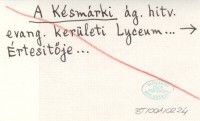 A Késmárki ág. hitv.
evang. kerületi Lyceum... →
Értesitője...